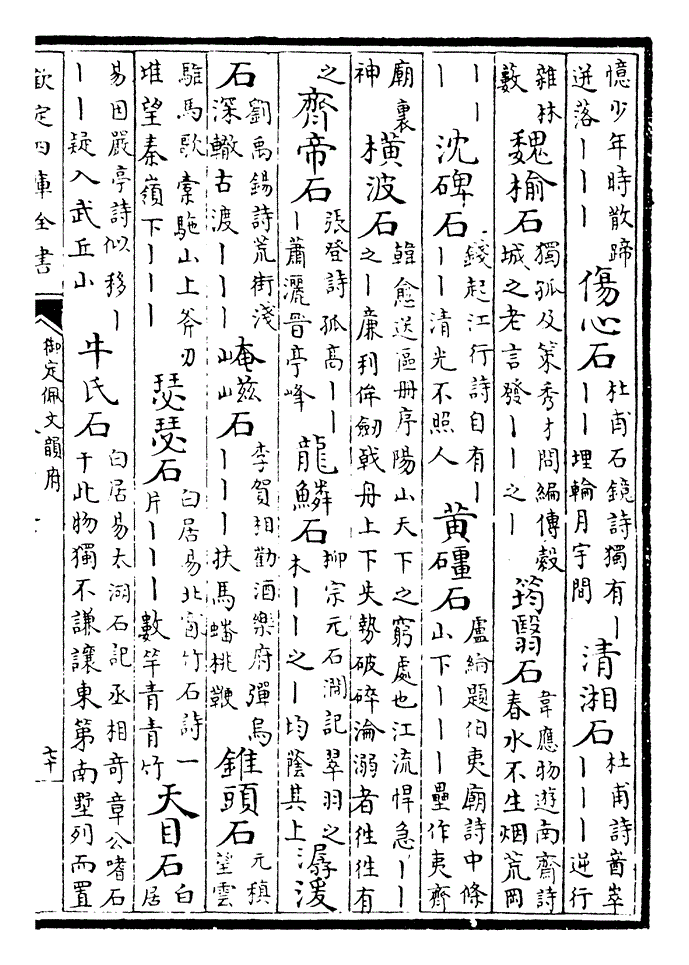 憶少年時散蹄迸落｜｜｜傷心石杜甫石鏡詩獨有｜｜｜埋輪月宇間清湘石杜甫詩酋崒｜｜｜逆行
雜林藪魏榆石獨孤及策秀才問編傳穀城之老言發｜｜之｜筠翳石韋應物遊南齋詩春水不生烟荒岡
｜｜｜沈碑石錢起江行詩自有｜｜｜清光不照人黃礓石盧綸題伯夷廟詩中條山下｜｜｜壘作夷齊
廟裏神橫波石韓愈送區册序陽山天下之窮處也江流悍急｜｜之｜廉利侔劒戟舟上下失勢破碎淪溺者徃徃有
之齊帝石張登詩孤高｜｜｜蕭灑晉亭峰龍鱗石柳宗元石澗記翠羽之木｜｜之｜均蔭其上潺湲
石劉禹錫詩荒街淺深轍古渡｜｜｜崦嵫石李賀相勸酒樂府彈烏｜｜｜扶馬蟠桃鞭錐頭石元稹望雲
騅馬歌橐駞山上斧刃堆望秦嶺下｜｜｜瑟瑟石白居易北窗竹石詩一片｜｜｜數竿青青竹天目石白居
易因嚴亭詩似移｜｜｜疑入武丘山牛氏石白居易太湖石記丞相奇章公嗜石于此物獨不謙讓東第南墅列而置
欽定四庫全書
御定佩文韻府
七十